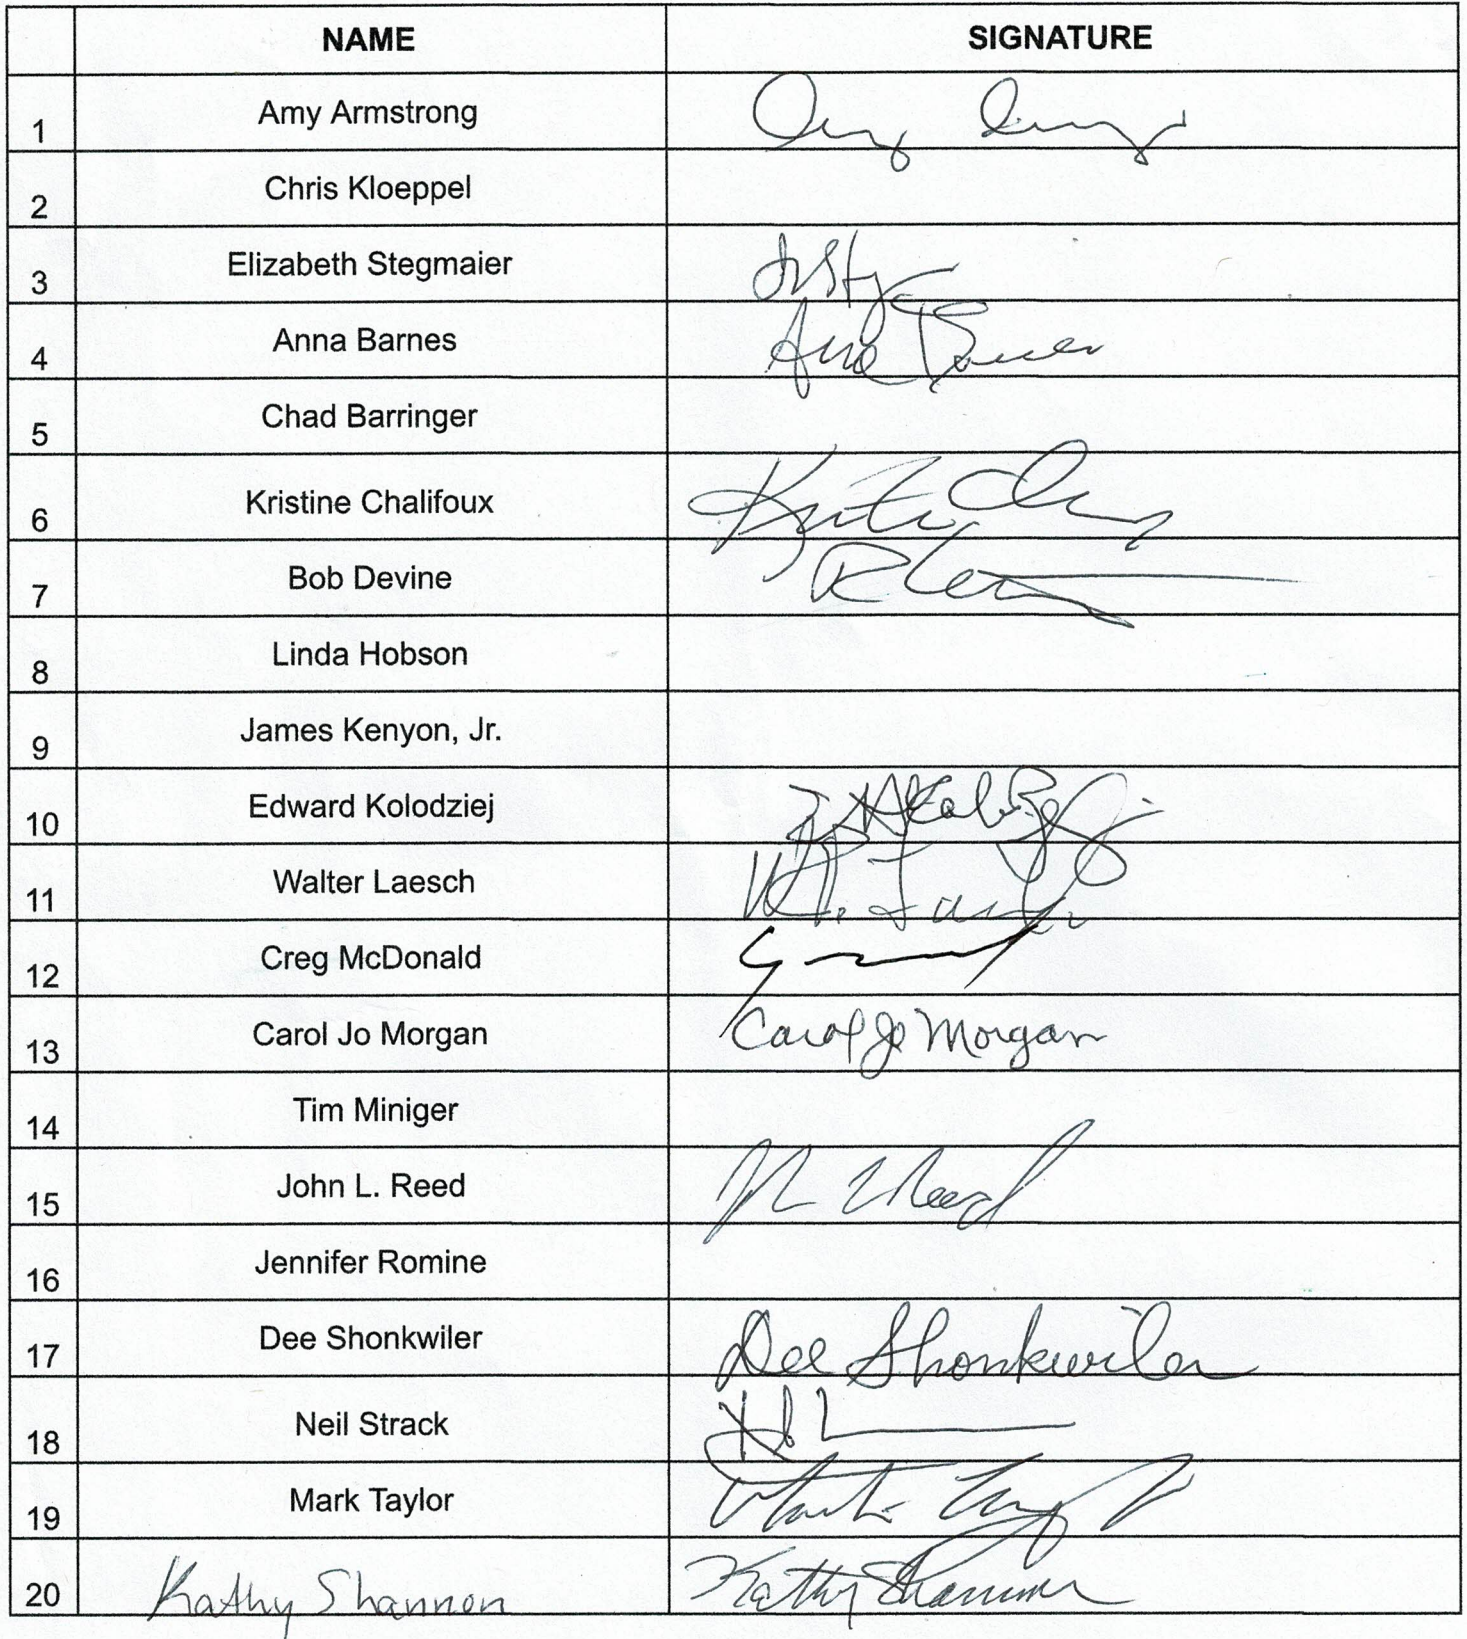 NAME SIGNATURE
1 Amy Armstrong
2 Chris Kloeppel
3 Elizabeth Stegmaier
4 Anna Barnes
5 Chad Barringer
6 Kristine Chalifoux
7 Bob Devine
8 Linda Hobson
9 James Kenyon, Jr.
10 Edward Kolodziej
11 Walter Laesch
12 Creg McDonald
13 Carol Jo Morgan Carol Jo Morgan
14 Tim Miniger
15 John L. Reed Reed
16 Jennifer Romine
17 Dee Shonkwiler Dee Shonkwiler
18 Neil Strack
19 Mark Taylor
20 Kathy Shannon Kathy Shannon